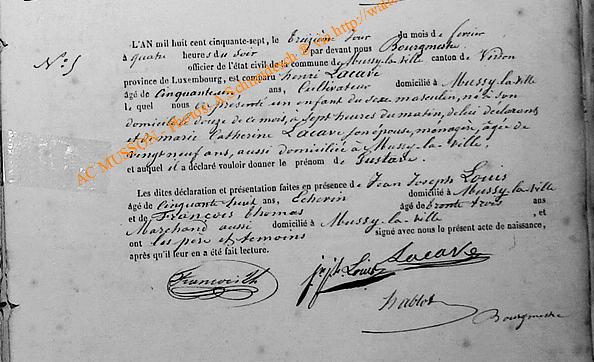 N° 5
L'AN mil huit cent cinquante-sept, le treizieme jour du mois de fevrier
à quatre heures du soir par devant nous Bourgmestre
officier de l'état civil de la commune de Mussy-la-Ville canton de Virton
province de Luxembourg, est comparu henri Lacave
âgé de Cinquante un ans, Cultivateur domicilié à Mussy-la-Ville
le quel nous a présenté un enfant du sexe masculin, né à son
domicile le douze de ce mois, à sept heures du matin, de lui déclarant
et de marie Catherine Lacave son épouse, menagère, âgée de
vingt neuf ans, aussi domiciliée à Mussy-la-Ville.
et auquel il a déclaré vouloir donner le prénom de Gustave.
Les dites déclaration et présentation faites en présence de Jean Joseph Louis
âgé de Cinquante huit ans, Echevin domicilié à Mussy-la-Ville
et de François thomas âgé de trente trois ans,
Marchand aussi domicilié à Mussy-la-Ville, et
ont les père et temoins signé avec nous le présent acte de naissance,
après qu'il leur en a été fait lecture.
Louis Lacave
Bourgmestre
AC MUSSON - Photos A. Schmalfeseh © via http://